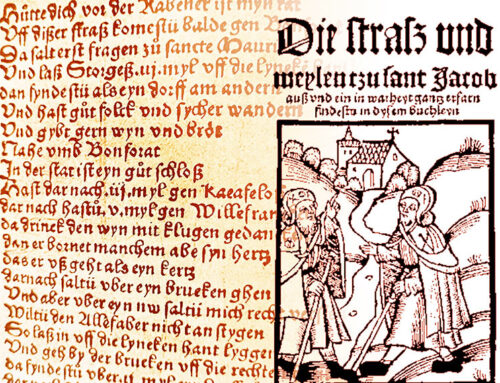 Hütte dich vor der Rabenel ist myn rat
Vff disser straß komestu balde gen
Da salt erst fragen zu sancte Mauri
Vnd laß Storgeß .iij. myl vff die lynekē
dan fyndestu als eyn dorff am andern
Vnd hast gůt folck vnd sycher wandern
Vnd gybt gern wyn vnd brot
Nahe vmb Bonforat
In der stat ist eyn gůt schloß
Hast dar nach .iij. myl gen Kacafelo
dar nach hastů .v. myl gen Willefran
da drinck den wyn mit klugen gedan
dan er bornet manchem abe syn hertz
das er vß geht als eyn kertz
darnach saltu vber eyn brucken ghen
Vnd aber vber eyn nw saltu mich recht
Wiltu den Allefaber nicht an stygen
So laß in vff die lyneken hant lyggen
Vnd geh by der brucken vff die rechte
da fyndestu vber .ij. myl
Die straß vnd
meylen tzu sant Jacob
auß vnd ein in warheyt gantz erfarn
findestu in dysem buchleyn